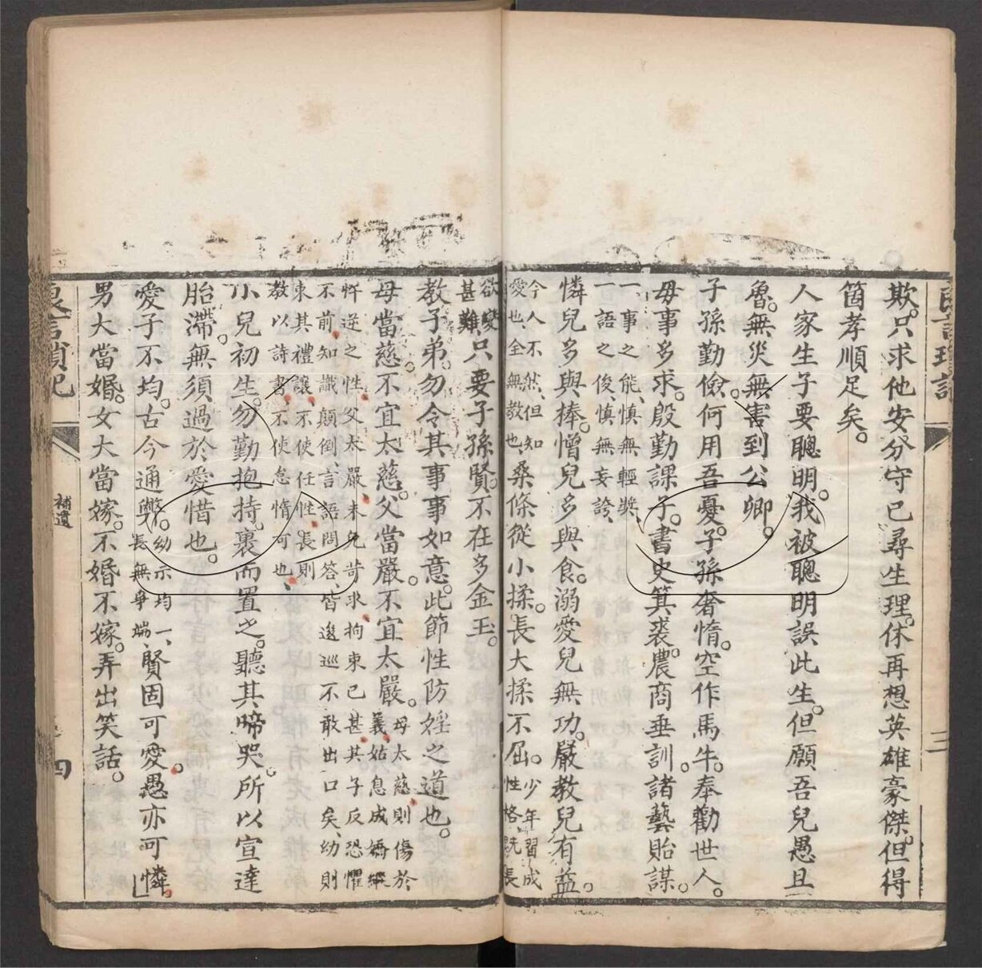 欺。只求他安分守己尋生理。休再想英雄豪傑。但得
箇孝順足矣。
人家生子要聰明。我被聰明誤此生。但願吾兒愚且
魯。無災無害到公卿。
子孫勤儉。何用吾憂。子孫奢惰。空作馬牛。奉勸世人。
毋事多求。殷勤課子。書史箕裘。農商垂訓。諸藝貽謀。
一事之能、慎無輕獎、
一語之俊、慎無妄誇、
憐兒多與棒。憎兒多與食。溺愛兒無功。嚴教兒有益。
今人不然、但知
愛也、全無教也、
桑條從小揉。長大揉不屈。
少年習成
性格、既長
欲變
甚難
只要子孫賢。不在多金玉。
教子弟。勿令其事事如意。此節性防婬之道也。
母當慈。不宜太慈。父當嚴。不宜太嚴。
母太慈則傷於
義、姑息成嬌縱
忤逆之性、父太嚴、未免苛求、拘束已甚、其子反恐懼
不前、知識顛倒、言語問答、皆逡巡不敢出口矣、幼則
束其禮讓、不使任性、長則
教以詩書、不使怠惰、可也、
小兒初生。勿勤抱持。裹而置之。聽其啼哭。所以宣達
胎滯。無須過於愛惜也。
愛子不均。古今通弊。
幼示均一、
長無爭端、
賢固可愛。愚亦可憐。
男大當婚。女大當嫁。不婚不嫁。弄出笑話。
補遺
四
三